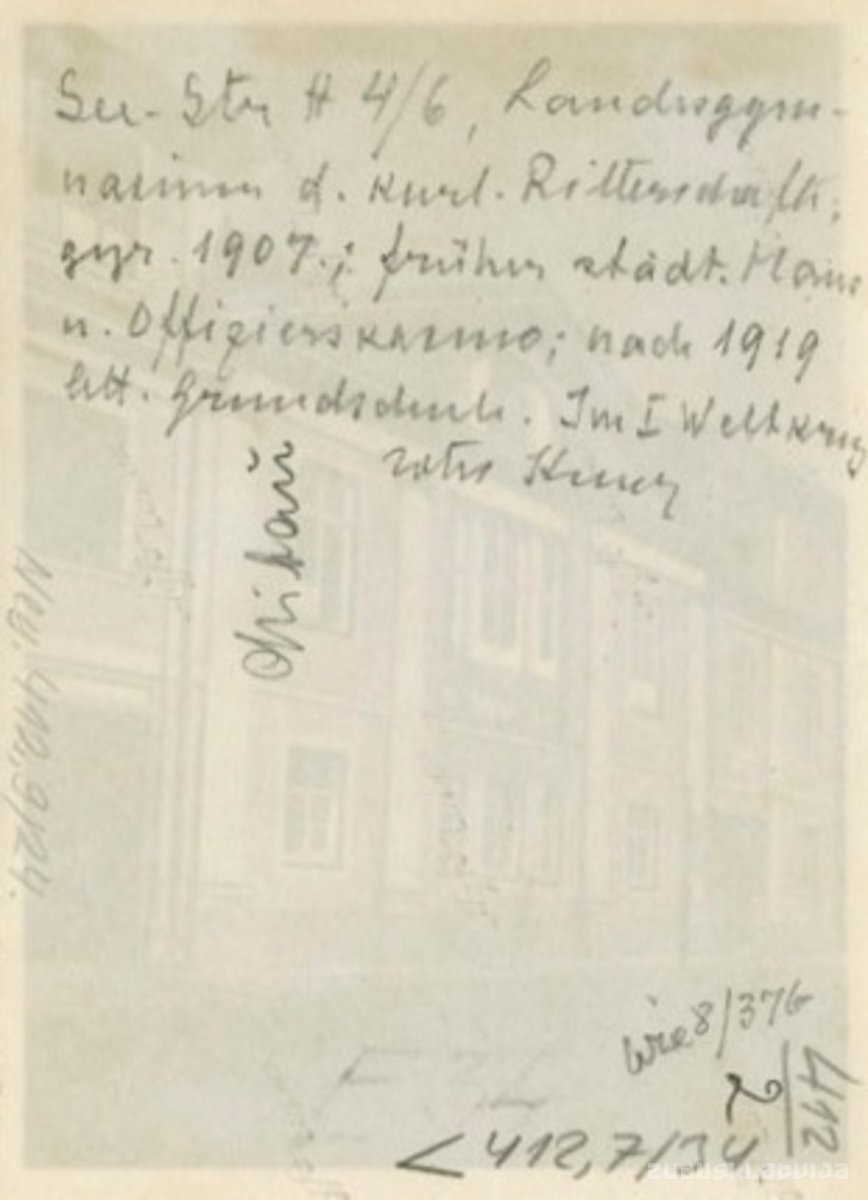 See-Str # 4/6, Landesgym-
nasium d. kurl. Ritterschaft,
gegr. 1907.; früher städt. Haus
u. Offizierskasino; nach 1919
lett. Grundschule. Im I Weltkrieg
rotes Kreuz
Neg. 412,9/24.
wie 8/376
412
2
< 412,7/34
ZUDUSĪ LATVIJA